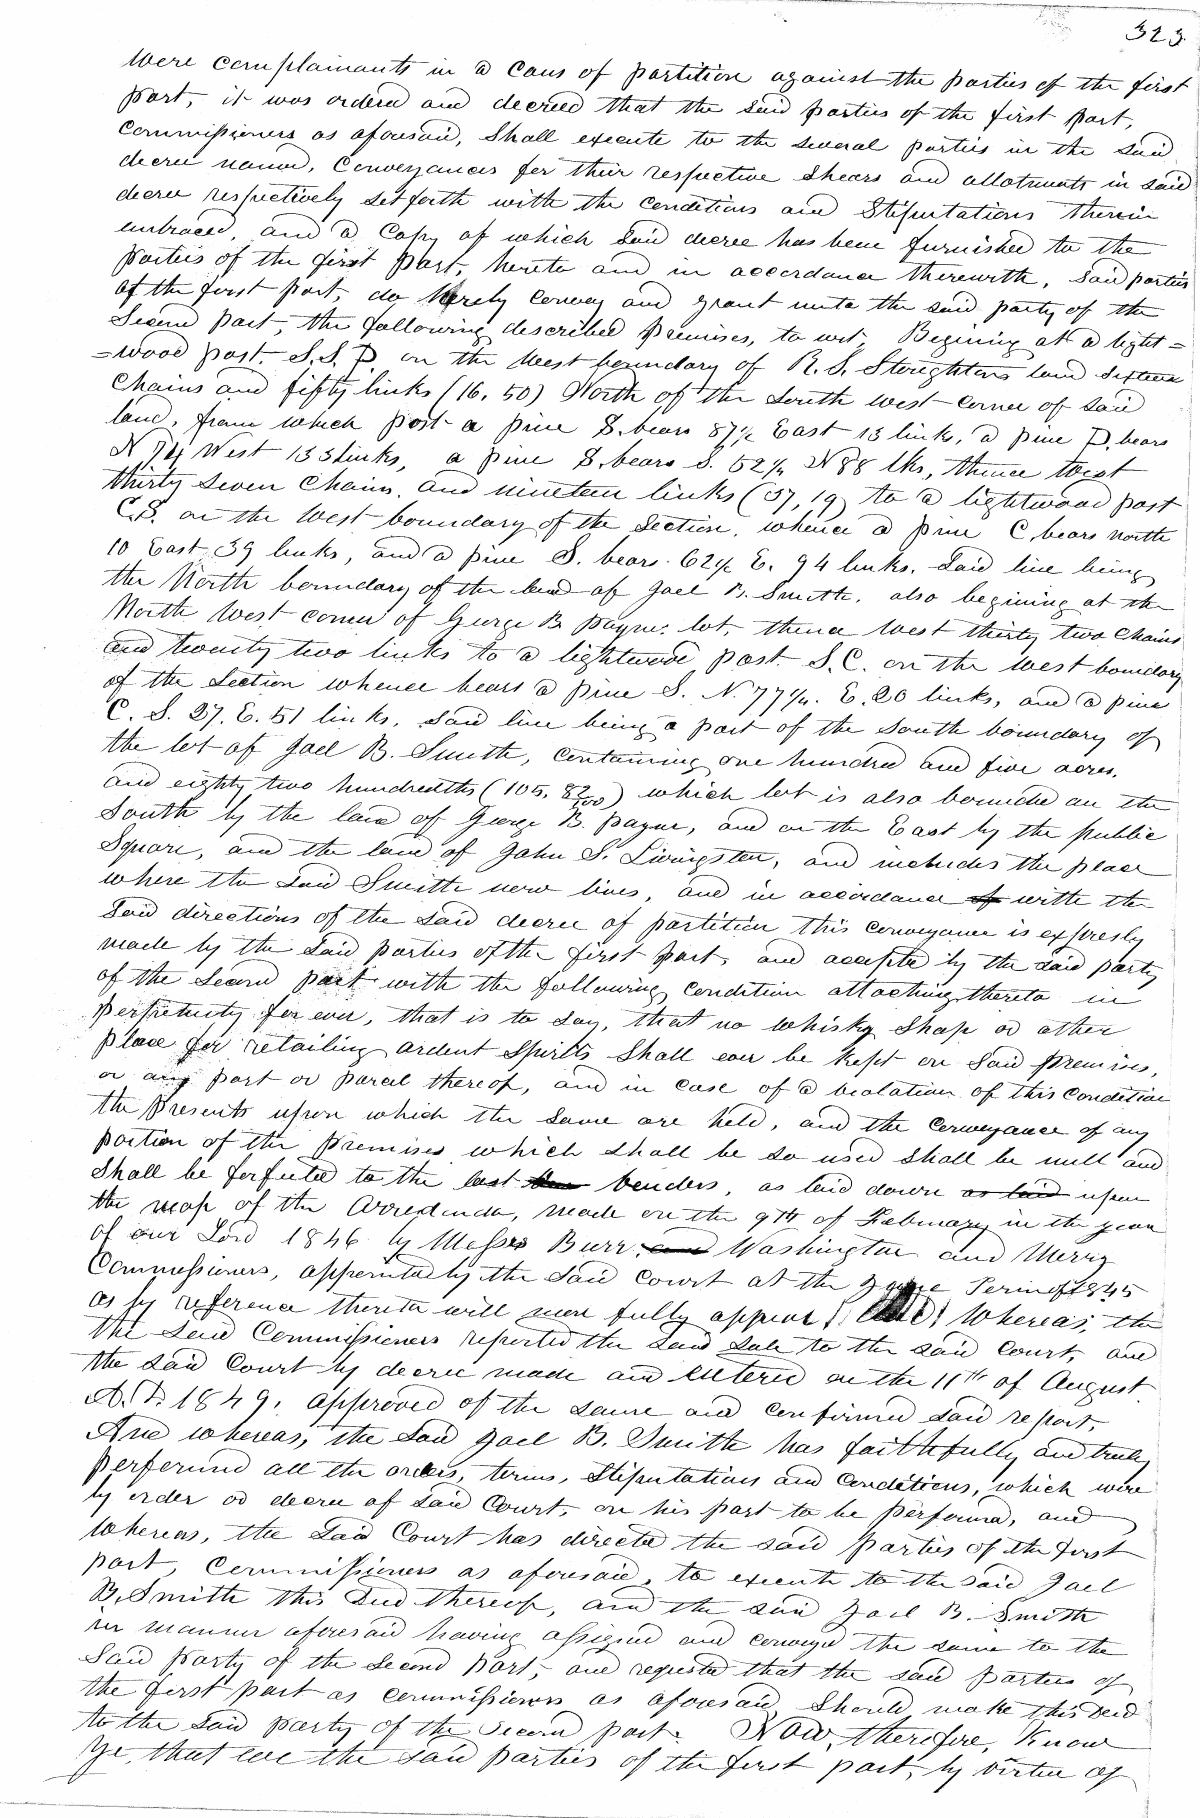 323
were complainants in a Caus of partition against the parties of the first
part, it was ordered and decreed that the said parties of the first part,
Commissioners as aforesaid, Shall execute to the several parties in the said
decree named, Conveyances for their respective Shears and allotments in said
decree respectively set forth with the Conditions and Stipulations therein
embraced, and a Copy of which said decree has been furnished to the
parties of the first part, hereto and in accordance therewith, said parties
of the first part, do hereby convey and grant unto the said party of the
Second part, the following described premises, to wit, Begining at a light=
=wood post. S.S. P. on the West boundary of R. S. Stoughtons land Sixteen
Chains and fifty links (16.50) North of the South west corner of said
land, from which post a pine S. bears 87½ East 13 links, a pine P. bears
N 74 West 133 links, a pine S. bears S. 52½ N 88 lks, thence West
thirty Seven Chains, and nineteen links (37,19) to a lightwood post
C.S. on the West boundary of the Section, whence a pine C. bears north
10 East 39 links, and a pine S. bears 62½ E. 94 links. Said line being
the North boundary of the land of Jael B. Smith. also begining at the
North West corner of George B. Payne, lot, thence West thirty two Chains
and twenty two links to a lightwood post S.C. on the west boundary
of the Section whence bears a pine S. N. 77¼. E. 20 links, and a pine
C. S. 27. E. 51 links. Said line being a part of the South boundary of
the lot of Jael B. Smith, containing one hundred and five acres.
and eighty two hundredths (105. 82/100) which lot is also bounded on the
South by the land of George B. Payne, and on the East by the public
Square, and the land of John S. Livingston, and includes the place
where the said Smith now lives, and in accordance of with the
said directions of the said decree of partition this conveyance is expresly
made by the said parties of the first part, and accepted by the said party
of the Second part with the following condition attaching thereto in
perpetuity for ever, that is to say, that no whisky Shop or other
place for retailing ardent Spirits Shall ever be kept on said premises,
or any part or parcel thereof, and in case of a violation of this Condition
the presents upon which the same are held, and the Conveyance of any
portion of the premises which shall be so used shall be null and
Shall be forfeited to the last benders, as laid down as laid upon
the map of the Arredondo, made on the 9th of February in the year
of our Lord 1846 by Messrs Burr and Washington and Merry
Commissioners, appointed by the said Court at the Term of 1845
as by reference thereto will more fully appear, Whereas, the
the said Commissioners reported the said Sale to the said Court, and
the said Court by decree made and entered on the 11th of August
A.D. 1849, approved of the same and confirmed said report,
And whereas, the said Jael B. Smith has faithfully and truly
performed all the orders, terms, Stipulations and Conditions, which were
by order or decree of said Court, on his part to be performed, and
whereas, the said Court has directed the said parties of the first
part, Commissioners as aforesaid, to execute to the said Jael
B. Smith this Deed thereof, and the said Jael B. Smith
in manner aforesaid having assigned and conveyed the same to the
said party of the second part, and requested that the said parties of
the first part as commissioners as aforesaid Should make this Deed
to the said party of the Second part. Now, therefore, Know
Ye, that we the said parties of the first part, by virtue of